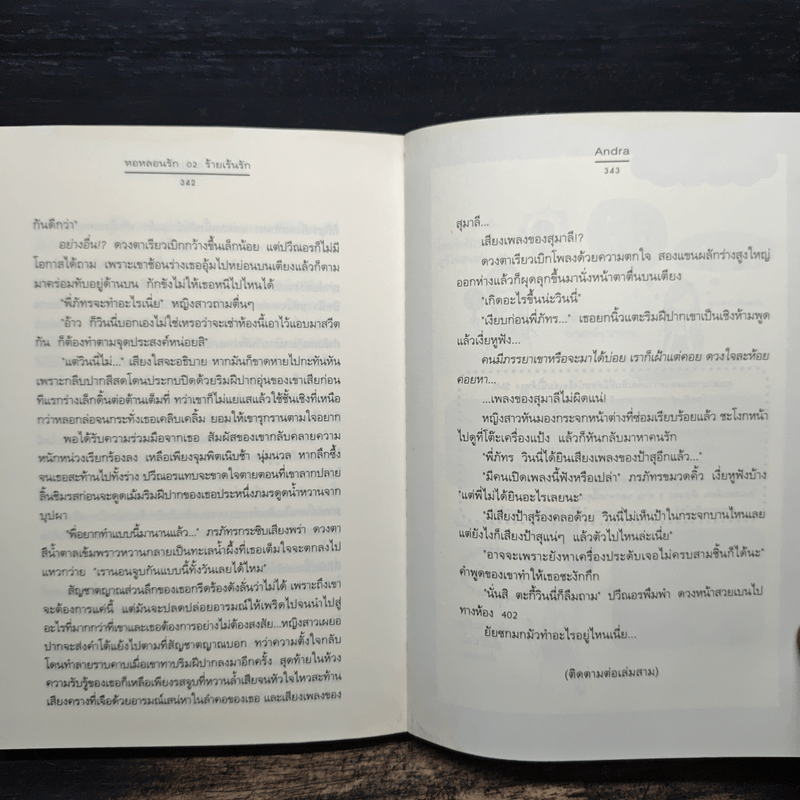 หอหลอนรัก 02 ร้ายเร้นรัก
342
กันดีกว่า"
อย่างอื่น!? ดวงตาเรียวเบิกกว้างขึ้นเล็กน้อย แต่ปวีณอรก็ไม่มี
โอกาสได้ถาม เพราะเขาช้อนร่างเธออุ้มไปหย่อนบนเตียงแล้วก็ตาม
มาคร่อมทับอยู่ด้านบน กักขังไม่ให้เธอหนีไปไหนได้
"พี่ภัทรจะทำอะไรเนี่ย" หญิงสาวถามตื่นๆ
"อ้าว ก็วินนี่บอกเองไม่ใช่เหรอว่าจะเช่าห้องนี้เอาไว้แอบมาสวีต
กัน ก็ต้องทำตามจุดประสงค์หน่อยสิ"
"แต่วินนี่ไม่..." เสียงใสจะอธิบาย หากมันก็ขาดหายไปกะทันหัน
เพราะกลีบปากสีสดโดนประกบปิดด้วยริมฝีปากอุ่นของเขาเสียก่อน
ทีแรกร่างเล็กดิ้นต่อต้านเต็มที่ ทว่าเขาก็ไม่แยแสแล้วใช้ชั้นเชิงที่เหนือ
กว่าหลอกล่อจนกระทั่งเธอเคลิบเคลิ้ม ยอมให้เขารุกรานตามใจอยาก
พอได้รับความร่วมมือจากเธอ สัมผัสของเขากลับคลายความ
หนักหน่วงเรียกร้องลง เหลือเพียงจุมพิตเนิบช้า นุ่มนวล หากลึกซึ้ง
จนเธอสะท้านไปทั้งร่าง ปวีณอรแทบจะขาดใจตายตอนที่เขาลากปลาย
ลิ้นชิมรสก่อนจะดูดเม้มริมฝีปากของเธอประหนึ่งภมรดูดน้ำหวานจาก
บุปผา
"พี่อยากทำแบบนี้มานานแล้ว..." ภรภัทรกระซิบเสียงพร่า ดวงตา
สีน้ำตาลเข้มพราวหวานกลายเป็นทะเลน้ำผึ้งที่เธอเต็มใจจะตกลงไป
แหวกว่าย "เรานอนจูบกันแบบนี้ทั้งวันเลยได้ไหม"
สัญชาตญาณส่วนลึกของเธอกรีดร้องดังลั่นว่าไม่ได้ เพราะถึงเขา
จะต้องการแค่นี้ แต่มันจะปลดปล่อยอารมณ์ให้เพริดไปจนนำไปสู่
อะไรที่มากกว่าที่เขาและเธอต้องการอย่างไม่ต้องสงสัย...หญิงสาวเผยอ
ปากจะส่งคำโต้แย้งไปตามที่สัญชาตญาณบอก ทว่าความตั้งใจกลับ
โดนทำลายราบคาบเมื่อเขาทาบริมฝีปากลงมาอีกครั้ง สุดท้ายในห้วง
ความรับรู้ของเธอก็เหลือเพียงรสจูบที่หวานล้ำเสียจนหัวใจไหวสะท้าน
เสียงครางที่เจือด้วยอารมณ์เสน่หาในลำคอของเธอ และเสียงเพลงของ
Andra
343
สุมาลี...
เสียงเพลงของสุมาลี!?
ดวงตาเรียวเบิกโพลงด้วยความตกใจ สองแขนผลักร่างสูงใหญ่
ออกห่างแล้วก็ผุดลุกขึ้นมานั่งหน้าตาตื่นบนเตียง
"เกิดอะไรขึ้นน่ะวินนี่"
"เงียบก่อนพี่ภัทร..." เธอยกนิ้วแตะริมฝีปากเขาเป็นเชิงห้ามพูด
แล้วเงี่ยหูฟัง...
คนมีภรรยาเขาหรือจะมาได้บ่อย เราก็เฝ้าแต่คอย ดวงใจละห้อย
คอยหา...
...เพลงของสุมาลีไม่ผิดแน่!
หญิงสาวหันมองกระจกหน้าต่างที่ซ่อมเรียบร้อยแล้ว ชะโงกหน้า
ไปดูที่โต๊ะเครื่องแป้ง แล้วก็หันกลับมาหาคนรัก
"พี่ภัทร วินนี่ได้ยินเสียงเพลงของป้าสุอีกแล้ว..."
"มีคนเปิดเพลงนี้ฟังหรือเปล่า" ภรภัทรขมวดคิ้ว เงี่ยหูฟังบ้าง
"แต่พี่ไม่ได้ยินอะไรเลยนะ"
"มีเสียงป้าสุร้องคลอด้วย วินนี่ไม่เห็นป้าในกระจกบานไหนเลย
แต่ยังไงก็เสียงป้าสุแน่ๆ แล้วตัวไปไหนล่ะเนี่ย"
"อาจจะเพราะยังหาเครื่องประดับเจอไม่ครบสามชิ้นก็ได้นะ"
คำพูดของเขาทำให้เธอชะงักกึก
"นั่นสิ ตะกี้วินนี่ก็ลืมถาม" ปวีณอรพึมพำ ดวงหน้าสวยเบนไป
ทางห้อง 402
ยัยซกมกมัวทำอะไรอยู่ไหนเนี่ย...
(ติดตามต่อเล่มสาม)